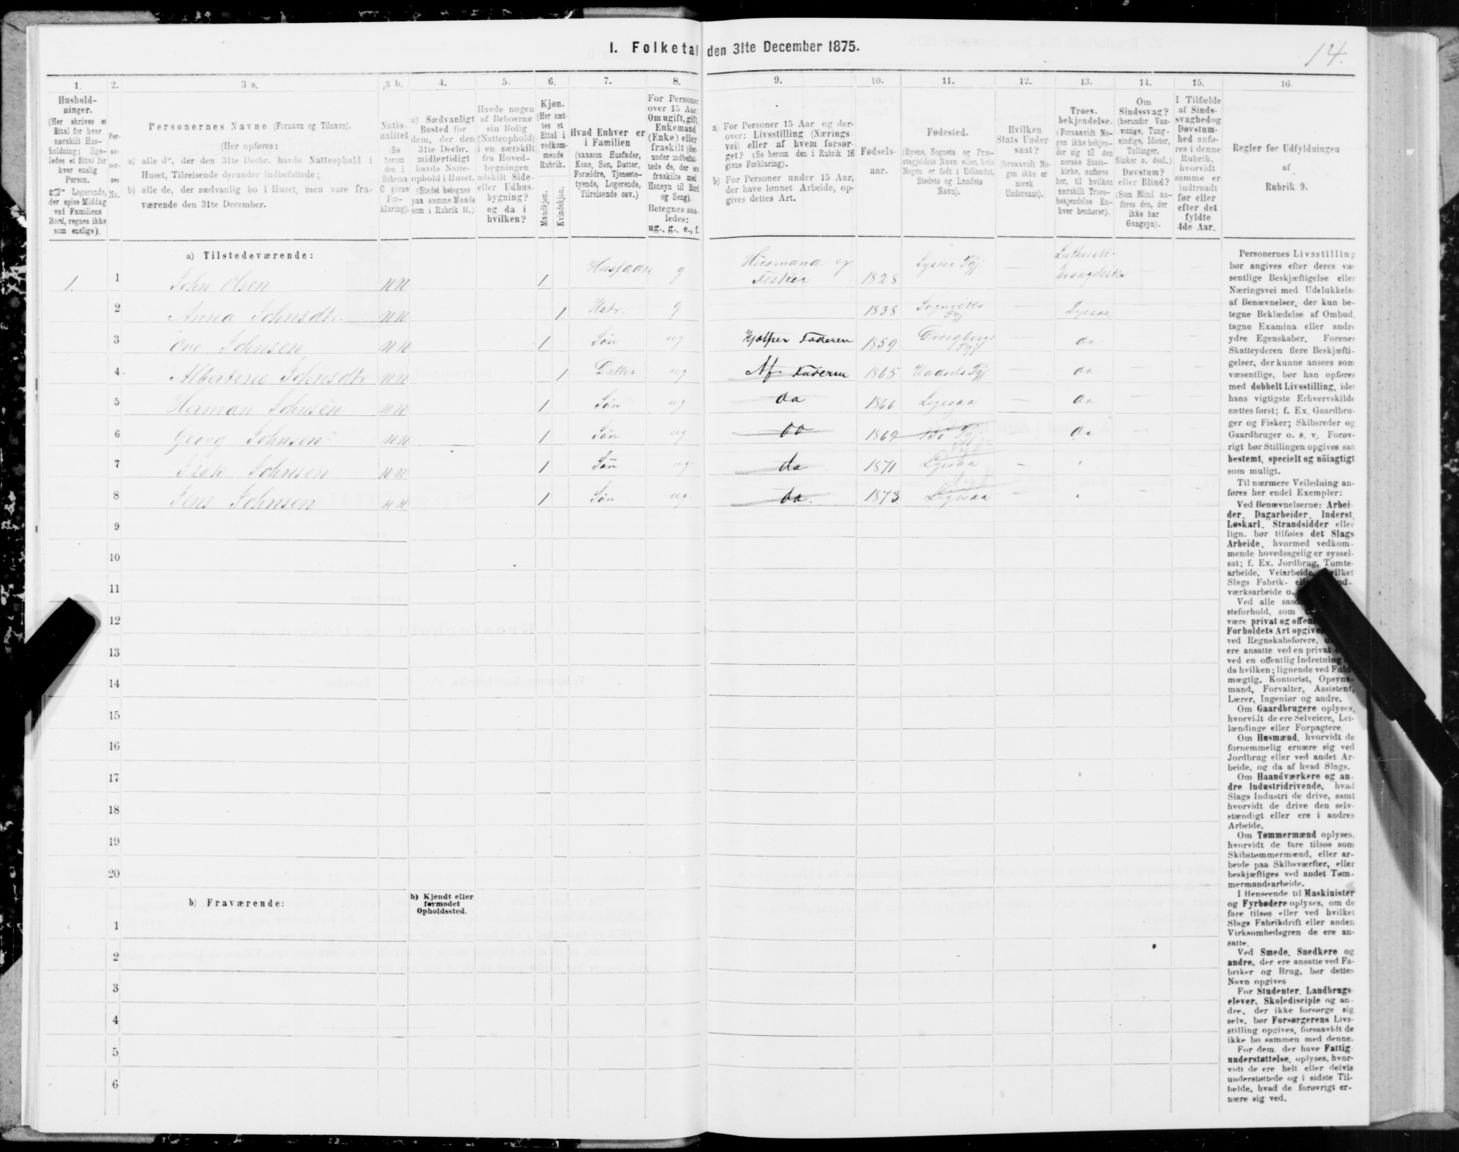 I. Folketal den 31te December 1875.
14.
1.
2.
3 a.
3 b.
4.
5.
6.
7.
8.
9.
10.
11.
12.
13.
14.
15.
16.
Hushold-
ninger.
(Her skrives et
Ettal for hver
særskilt Hus-
holdning; lige-
ledes et Ettal for
hver enslig
Person.
Logerende,
der spise Middag
ved Familiens
Bord, regnes ikke
som enslige).
Per-
so-
ner-
nes
No.
Personernes Navne (Fornavn og Tilnavn).
(Her opføres:
a) alle de, der den 31te Decbr. havde Natteophold i
Huset, Tilreisende derunder indbefattede;
b) alle de, der sædvanlig bo i Huset, men vare fra-
værende den 31te December.
Natio-
nalitet
(Se
herom
den i
Schema
C givne
For-
klaring).
a) Sædvanligt
Bosted for
dem, der den
31te Decbr.
midlertidigt
havde Natte-
ophold i Huset.
(Stedet betegnes
paa samme Maade
som i Rubrik 11.)
Havde nogen
af Beboerne
sin Bolig
(Natteophold)
i en særskilt
fra Hoved-
bygningen
adskilt Side-
eller Udhus-
bygning?
og da i
hvilken?
Kjøn.
(Her sæt-
tes et
Ettal i
vedkom-
mende
Rubrik.
Mandkjøn.
Kvindekjøn.
Hvad Enhver er
i Familien
(saasom Husfader,
Kone, Søn, Datter,
Forældre, Tjeneste-
tyende, Logerende,
Tilreisende osv.)
For Personer
over 15 Aar:
Om ugift, gift,
Enkemand
(Enke) eller
fraskilt (der-
under indbefat-
tede de, der ere
fraskilte med
Hensyn til Bord
og Seng).
Betegnes saa-
ledes:
ug., g., e., f.
a) For Personer 15 Aar og der-
over: Livsstilling (Nærings-
vei) eller af hvem forsør-
get? (Se herom den i Rubrik 16
givne Forklaring).
b) For Personer under 15 Aar,
der have lønnet Arbeide, op-
gives dettes Art.
Fødsels-
aar.
Fødested.
(Byens, Sognets og Præ-
stegjeldets Navn eller, hvis
Nogen er født i Udlandet,
Stedets og Landets
Navn).
Hvilken
Stats Under
saat?
(forsaavidt No-
gen ikke er
norsk
Undersaat).
Troes-
bekjendelse.
(Forsaavidt No-
gen ikke bekjen-
der sig til den
norske Stats-
kirke, anføres
her, til hvilken
særskilt Troes-
bekjendelse En-
hver henhører).
Om
Sindssvag?
(herunder Van-
vittige, Tung-
sindige, Idioter,
Tullinger,
Sinker o. desl.)
Døvstum?
eller Blind?
(Som Blind an-
føres den, der
ikke har
Gangsyn).
I Tilfælde
af Sinds-
svaghed og
Døvstum-
hed anfø-
res i denne
Rubrik,
hvorvidt
samme er
indtraadt
før eller
efter det
fyldte
4de Aar.
Regler for Udfyldningen
af
Rubrik 9.
a) Tilstedeværende:
1. 1 John Olsen 1 Husfader g Husmand og Fisker 1828 —
2 Anna Johnsdtr. 1 Hstr. g 1838 —
3 Ove Johnsen 1 Søn ug Hjælper Faderen 1859 — do
4 Albertine Johnsdtr 1 Datter ug Af Faderen 1865 — do
5 Herman Johnsen 1 Søn ug do 1866 — do
6 Georg Johnsen 1 Søn ug do 1869 do
7 Johnsen 1 Søn ug do 1871 —
8 Jens Johnsen 1 Søn ug do. 1873 —
9
10
11
12
13
14
15
16
17
18
19
20
b) Fraværende:
b) Kjendt eller
formodet
Opholdssted.
1
2
3
4
5
6
Personernes Livsstilling
bør angives efter deres væ-
sentlige Beskjæftigelse eller
Næringsvei med Udelukkelse
af Benævnelser, der kun be-
tegne Beklædelse af Ombud,
tagne Examina eller andre
ydre Egenskaber. Forener
Skatteyderen flere Beskjæfti-
gelser, der kunne ansees som
væsentlige, bør han opføres
med dobbelt Livsstilling, idet
hans vigtigste Erhvervskilde
sættes først; f. Ex. Gaardbru-
ger og Fisker; Skibsreder og
Gaardbruger o. s. v. Forøv-
rigt bør Stillingen opgives saa
bestemt, specielt og nöiagtigt
som muligt.
Til nærmere Veiledning an-
føres her endel Exempler:
Ved Benævnelserne: Arbei-
der, Dagarbeider, Inderst,
Løskarl, Strandsidder eller
lign. bør tilføies det Slags
Arbeide, hvormed vedkom-
mende hovedsagelig er syssel-
sat; f. Ex. Jordbrug, Tomte-
arbeide, Veiarbeide, hvilket
Slags Fabrik-
værksarbeide o.
Ved alle
steforhold, som
være privat og
Forholdets Art opgives
ved Regnskabsførere,
ere ansatte ved en privat
ved en offentlig Indretning
da hvilken; lignende ved Fuld-
mægtig, Kontorist, Opsyns-
mand, Forvalter, Assistent,
Lærer, Ingeniør og andre.
Om Gaardbrugere oplyses,
hvorvidt de ere Selveiere, Lei-
lændinge eller Forpagtere.
Om Husmænd, hvorvidt de
fornemmelig ernære sig ved
Jordbrug eller ved andet Ar-
beide, og da af hvad Slags.
Om Haandværkere og an-
dre Industridrivende, hvad
Slags Industri de drive, samt
hvorvidt de drive den selv-
stændigt eller ere i andres
Arbeide.
Om Tømmermænd oplyses,
hvorvidt de fare tilsøs som
Skibstømmermænd, eller ar-
beide paa Skibsværfter, eller
beskjæftiges ved andet Tøm-
mermandsarbeide.
I Henseende til Maskinister
og Fyrbødere oplyses, om de
fare tilsøs eller ved hvilket
Slags Fabrikdrift eller anden
Virksomhedsgren de ere an-
satte.
Ved Smede, Snedkere og
andre, der ere ansatte ved Fa-
briker og Brug, bør dettes
Navn opgives
For Studenter, Landbrugs-
elever, Skoledisciple og an-
dre, der ikke forsørge sig
selv, bør Forsørgerens Livs-
stilling opgives, forsaavidt de
ikke bo sammen med denne.
For dem, der have Fattig-
understøttelse, oplyses, hvor-
vidt de ere helt eller delvis
understøttede og i sidste Til-
fælde, hvad de forøvrigt er-
nære sig ved.